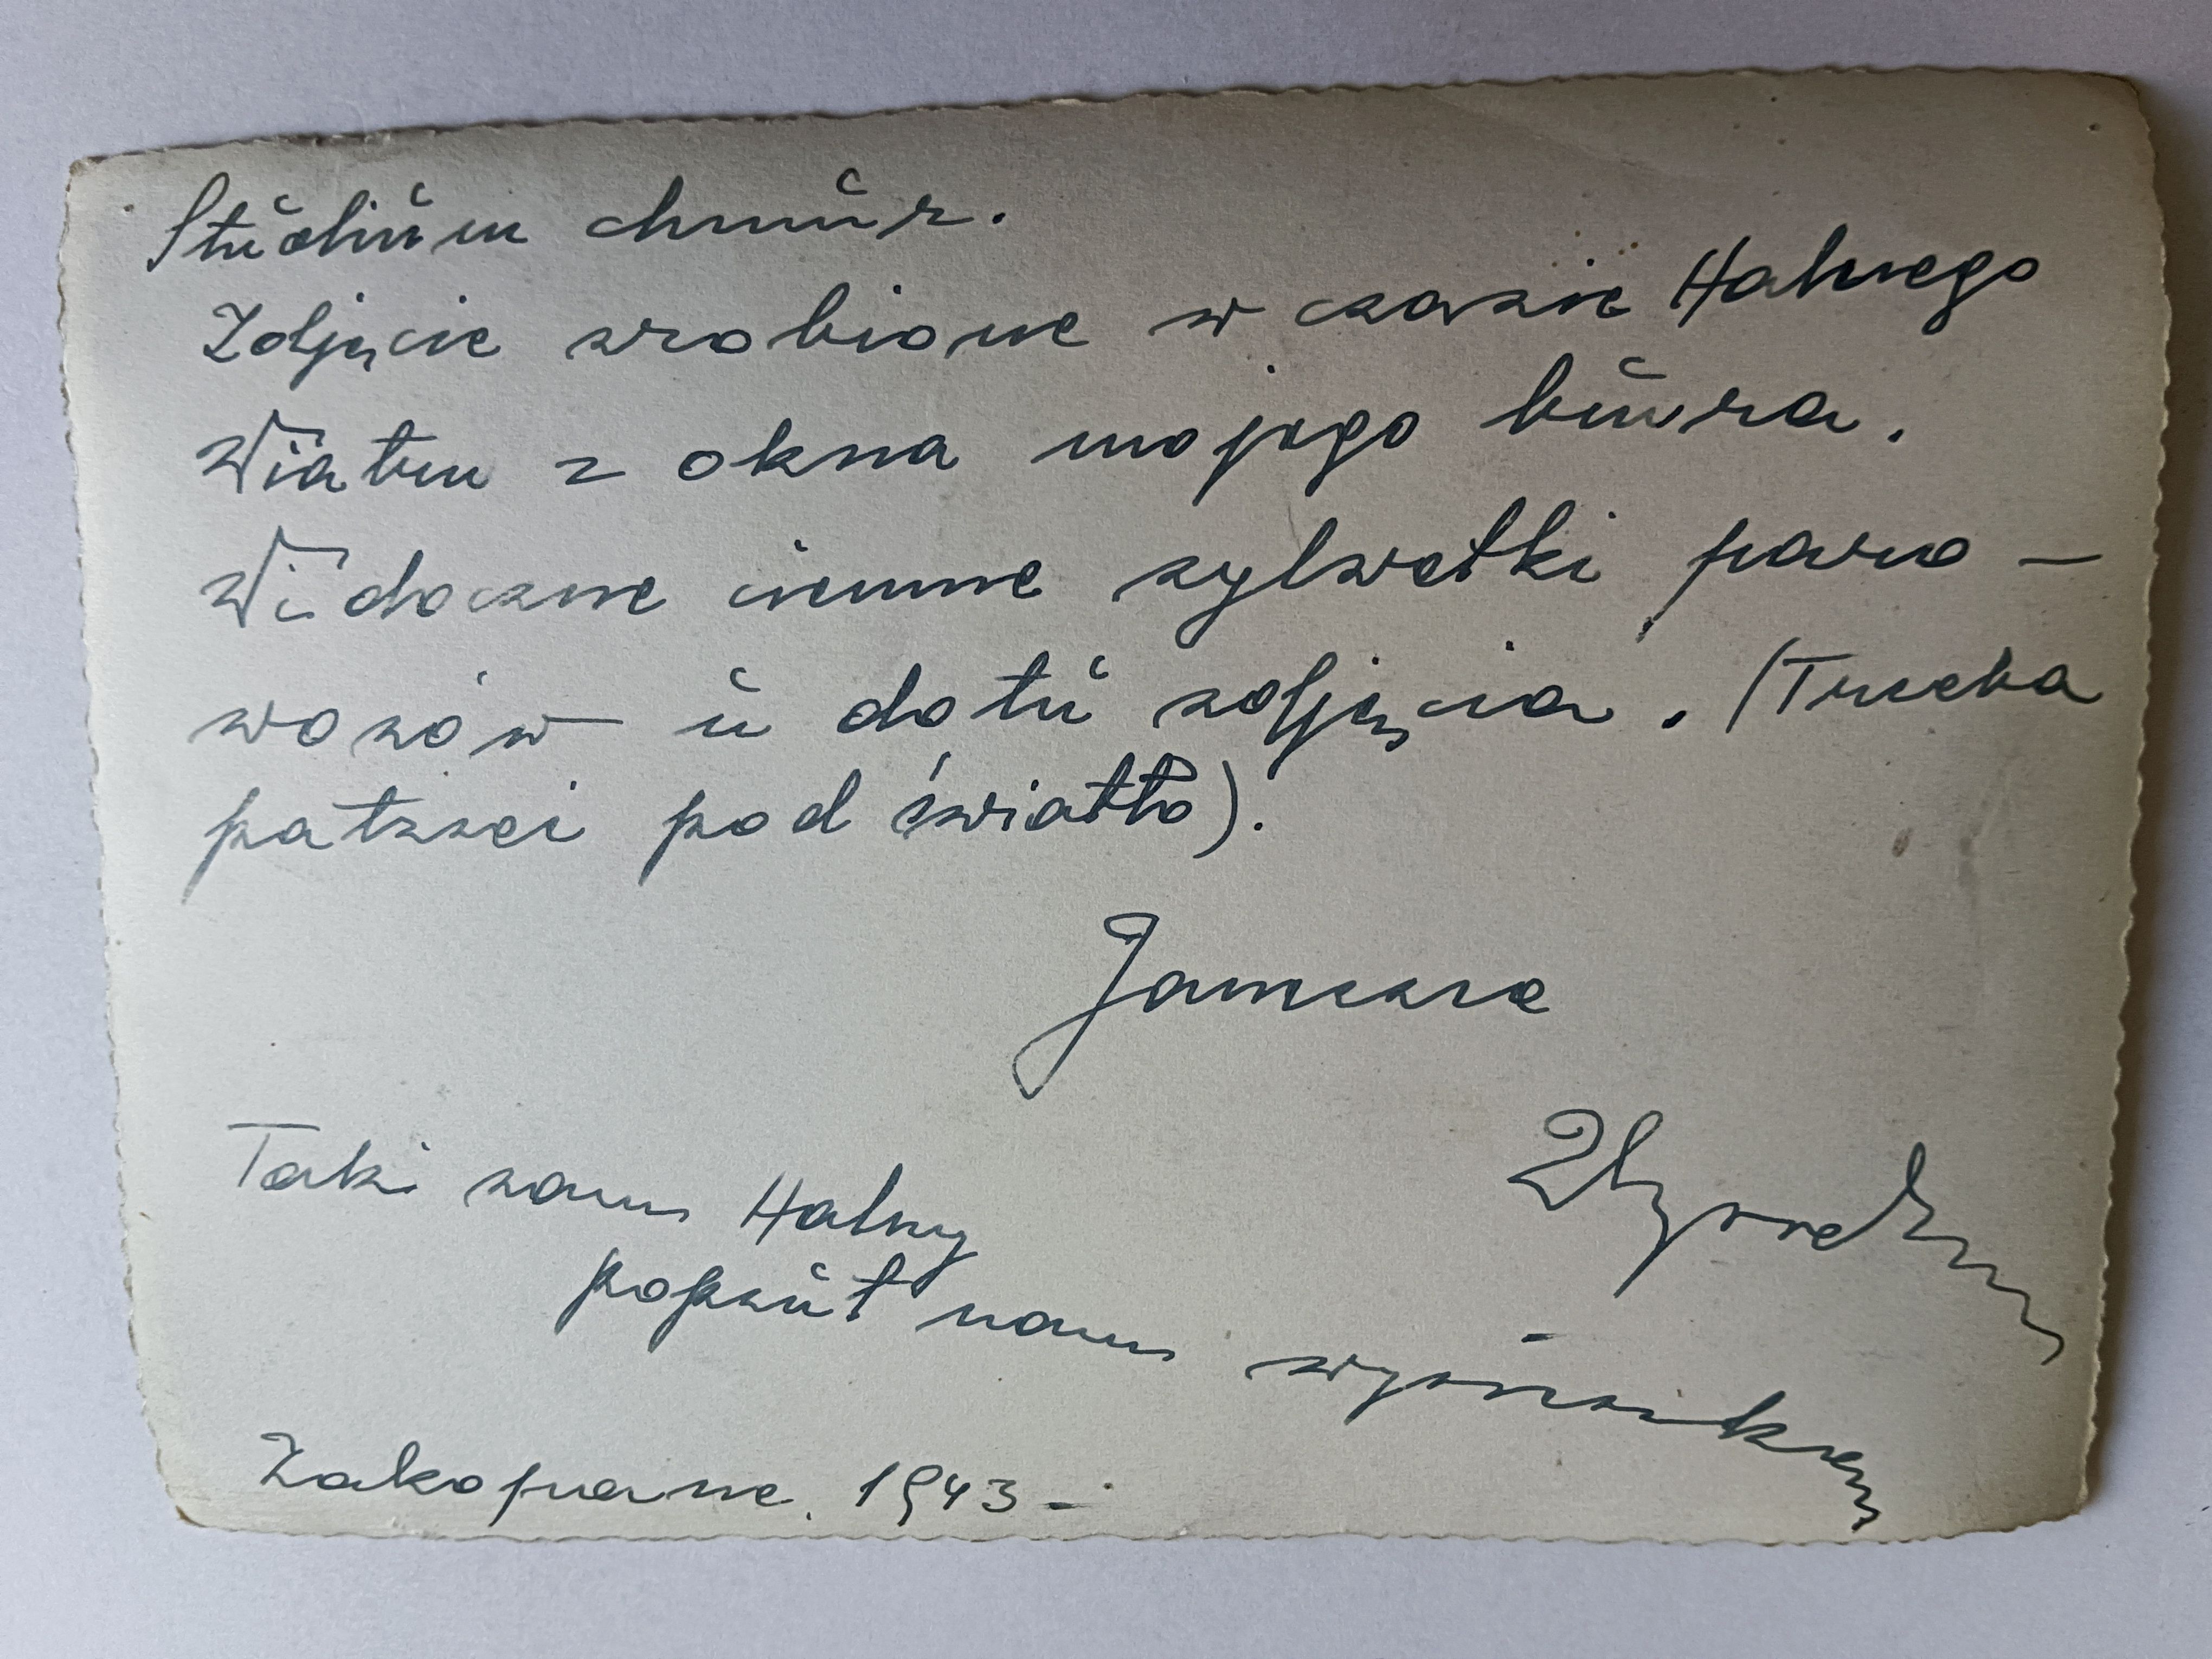 Studium chmur.
Zdjęcie zrobione w czasie Halnego
Wiatru z okna mojego biura.
Widoczne ciemne sylwetki paro-
wozów u dołu zdjęcia. (Trzeba
patrzeć pod światło).
Taki sam Halny
popsuł nam wycieczkę
Zakopane. 1943 -